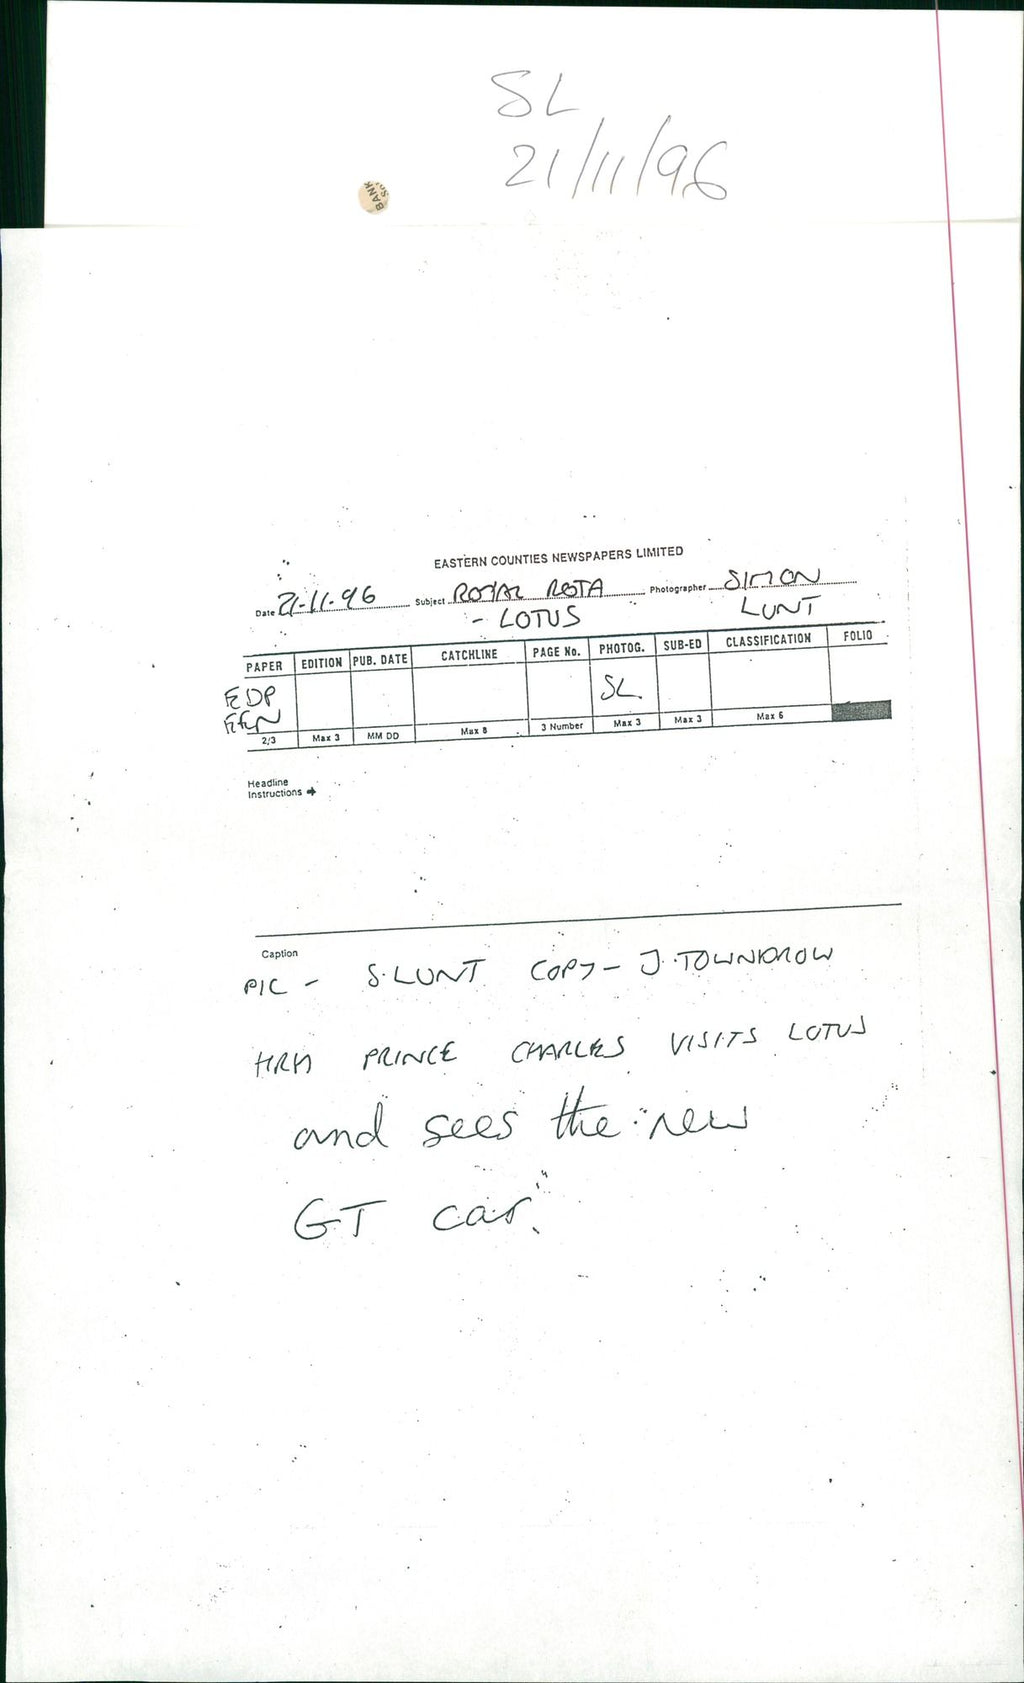 SL
21/11/96
BANK
EASTERN COUNTIES NEWSPAPERS LIMITED
Date 21-11-96 Subject ROYAL ROTA Photographer SIMON
- LOTUS LUNT
PAPER EDITION PUB. DATE CATCHLINE PAGE No. PHOTOG. SUB-ED CLASSIFICATION FOLIO
EDP SL
EEN
2/3 Max 3 MM DD Max 8 3 Number Max 3 Max 3 Max 6
Headline
Instructions →
Caption
PIC - S.LUNT COPY - J.TOWNDROW
HRH PRINCE CHARLES VISITS LOTUS
and sees the new
GT car.